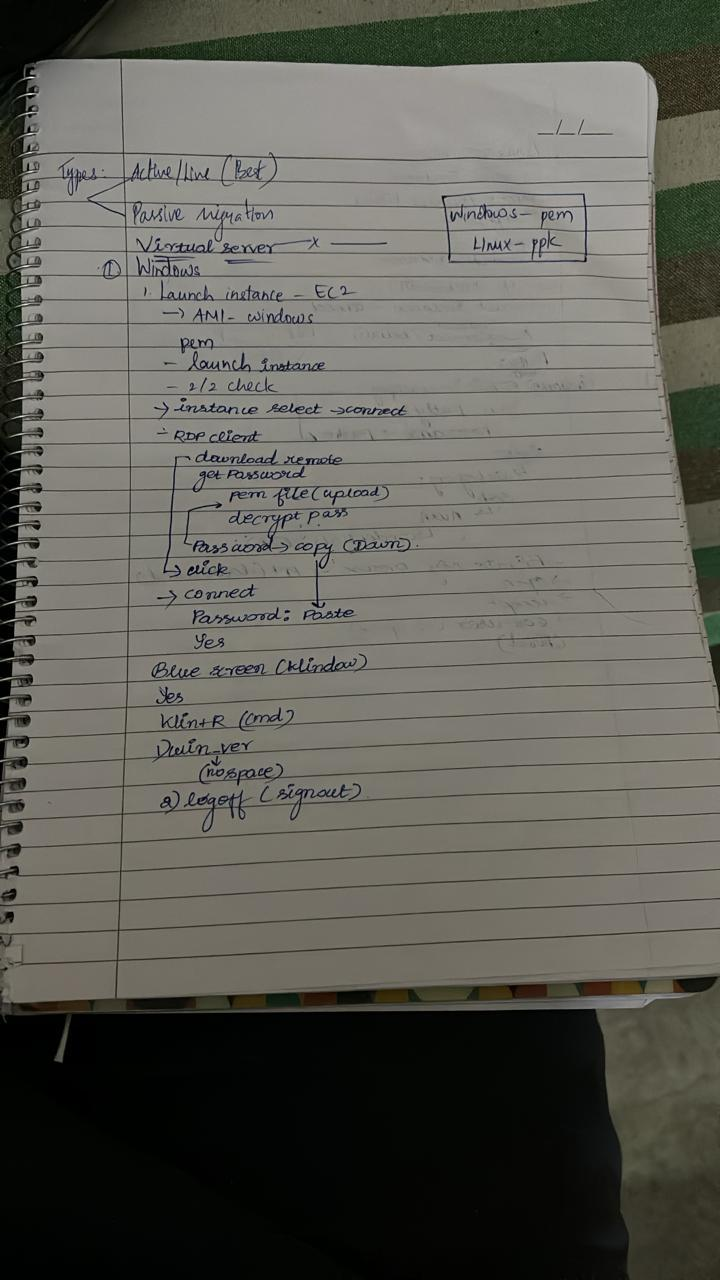 _/_/__
Types: Active/Live (Best)
Passive migration
Windows - pem
Linux - ppk
Virtual server —x——
① Windows
1. Launch instance - EC2
→ AMI - windows
pem
- launch instance
- 2/2 check
→ instance select → connect
- RDP client
download remote
get Password
pem file (upload)
decrypt pass
Password → copy (Down).
→ click
→ connect
Password: Paste
Yes
Blue screen (Window)
Yes
Win+R (cmd)
1) win_ver
(no space)
2) logoff (signout).